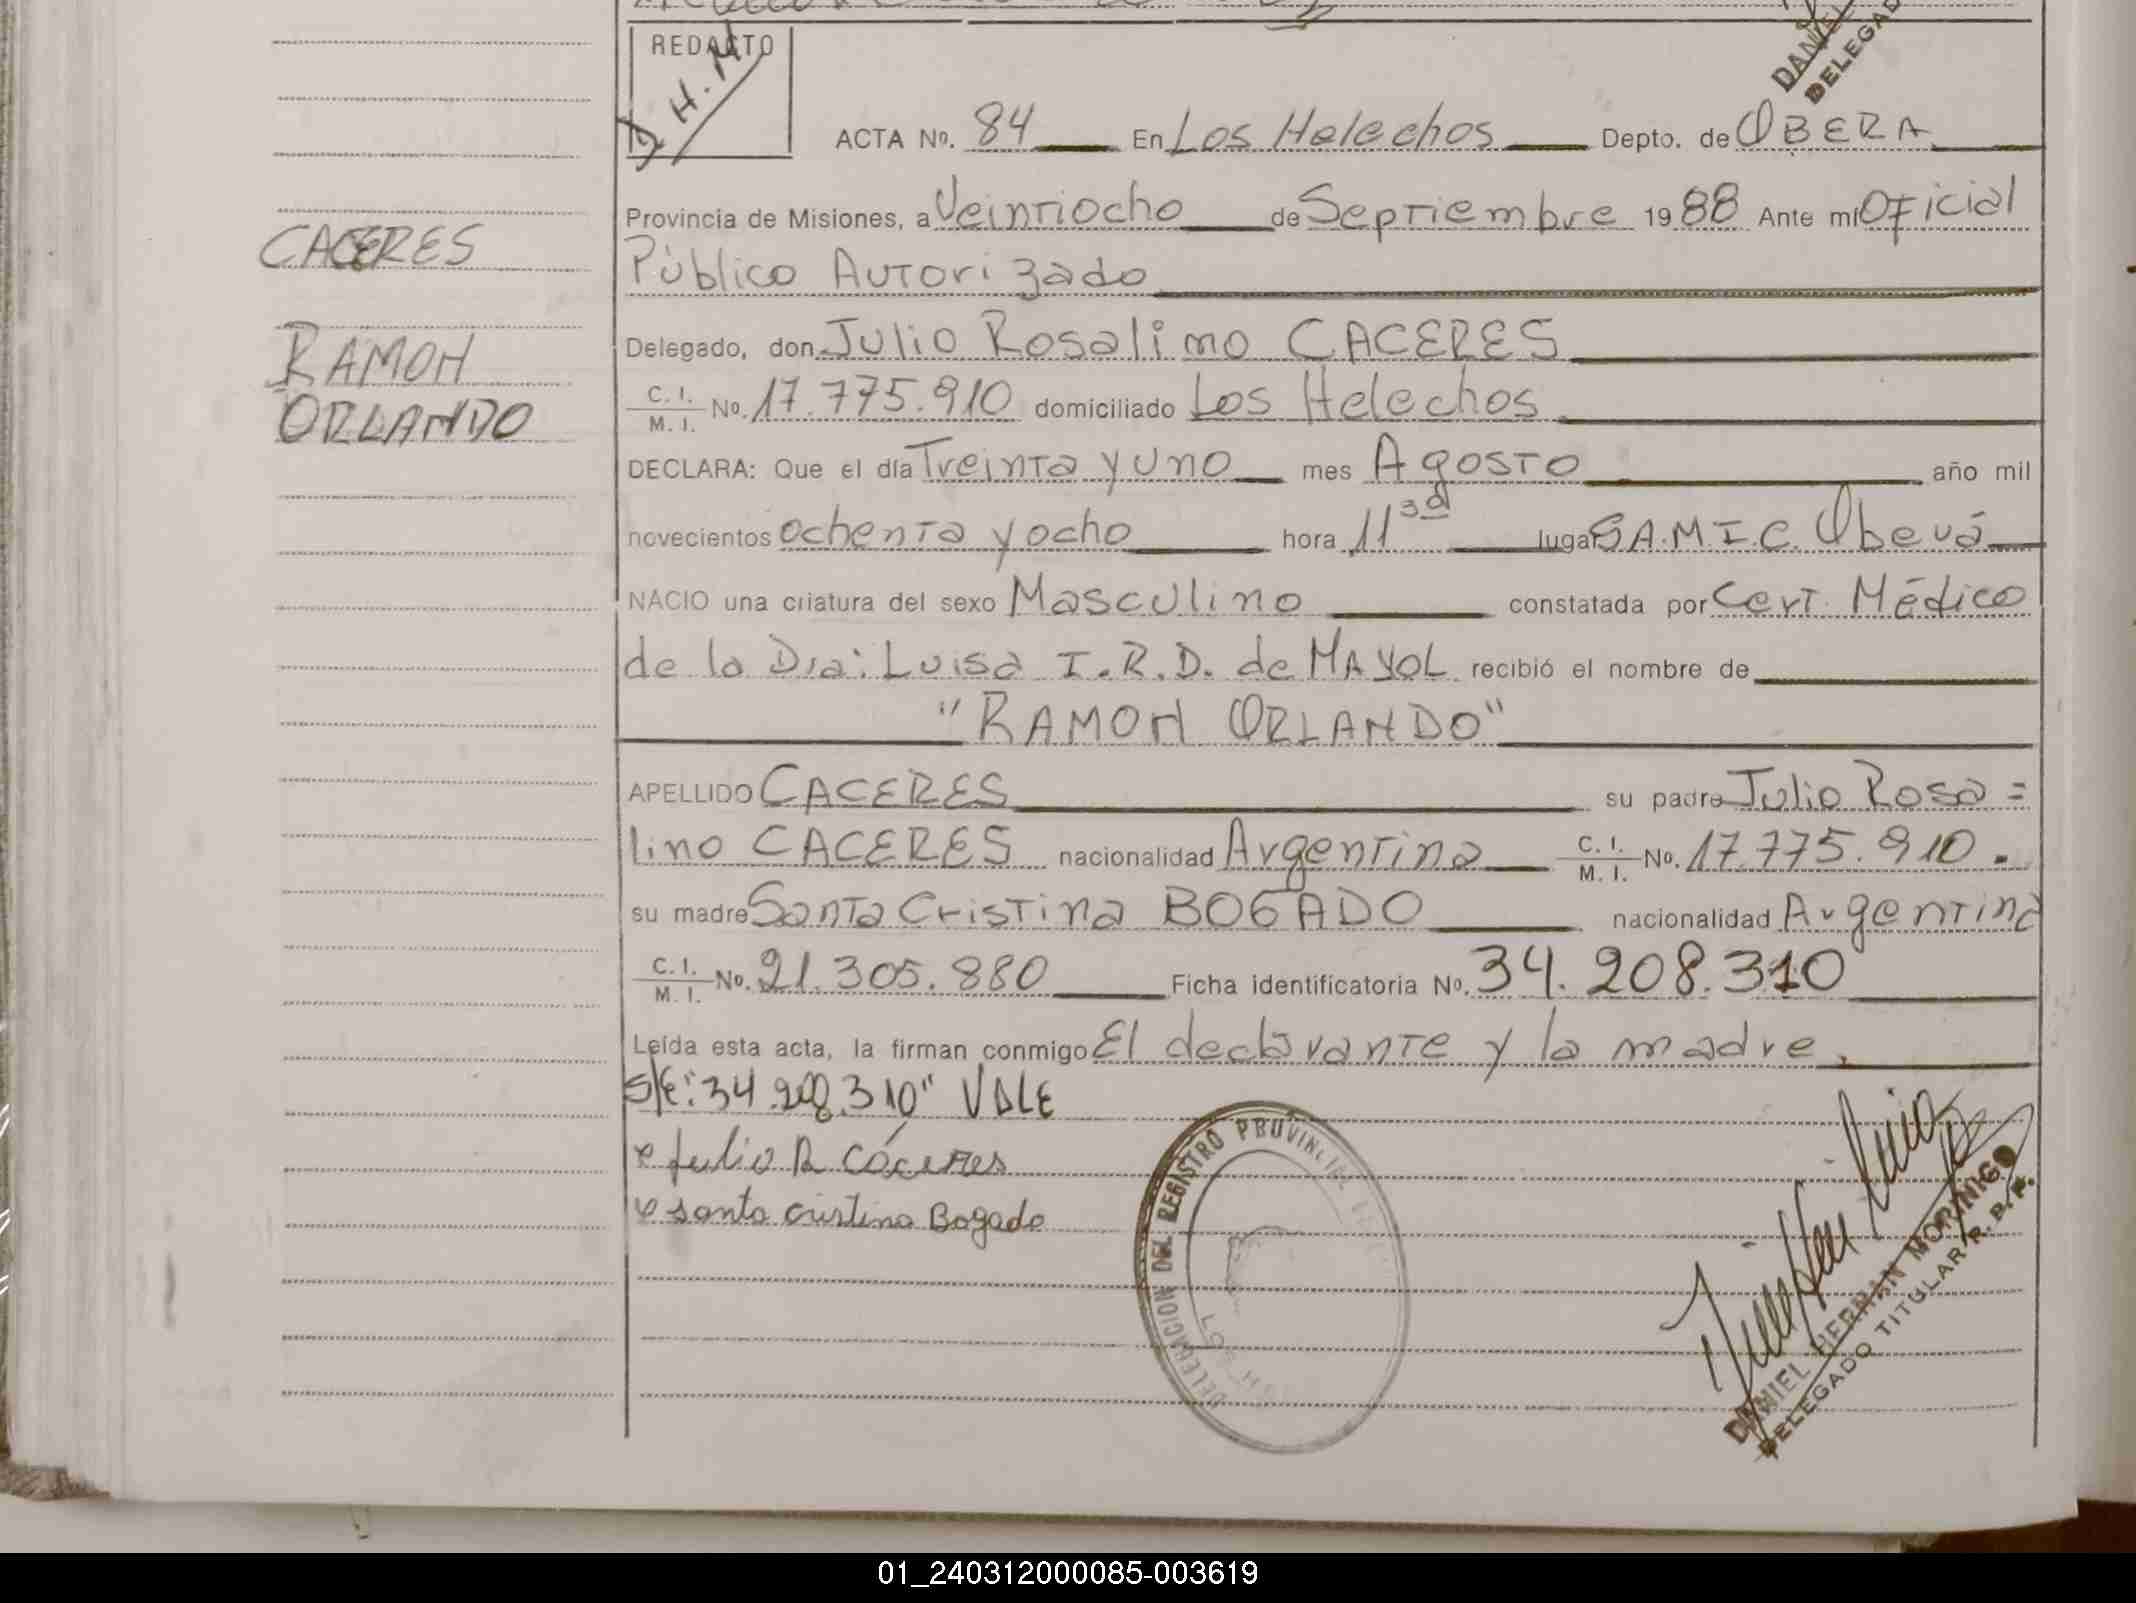 REDACTO
D.H.M
DANIEL
DELEGAD
ACTA No. 84 En Los Helechos Depto. de OBERA
Provincia de Misiones, a Veintiocho de Septiembre 1988 Ante mí Oficial
CACERES
Público Autorizado
RAMON
Delegado, don Julio Rosalino CACERES
C. I. / M. I. No. 17.775.910 domiciliado Los Helechos
ORLANDO
DECLARA: Que el día Treinta y uno mes Agosto año mil
novecientos ochenta y ocho hora 11 30 lugar S.A.M.I.C. Oberá
NACIO una criatura del sexo Masculino constatada por Cert. Médico
de la Dra: Luisa I.R.D. de MAYOL recibió el nombre de
"RAMON ORLANDO"
APELLIDO CACERES su padre Julio Rosa =
lino CACERES nacionalidad Argentina C. I. / M. I. No. 17.775.910.
su madre Santa Cristina BOGADO nacionalidad Argentina
C. I. / M. I. No. 21.305.880 Ficha identificatoria No. 34.208.310
Leída esta acta, la firman conmigo El declarante y la madre.
S/E: "34.208.310" VALE
Julio R Cáceres
santa cristina Bogado
DELEGACION DEL REGISTRO PROVINCIAL
LOS H
DANIEL HERNAN MORINIGO
DELEGADO TITULAR R. P. P.
01_240312000085-003619